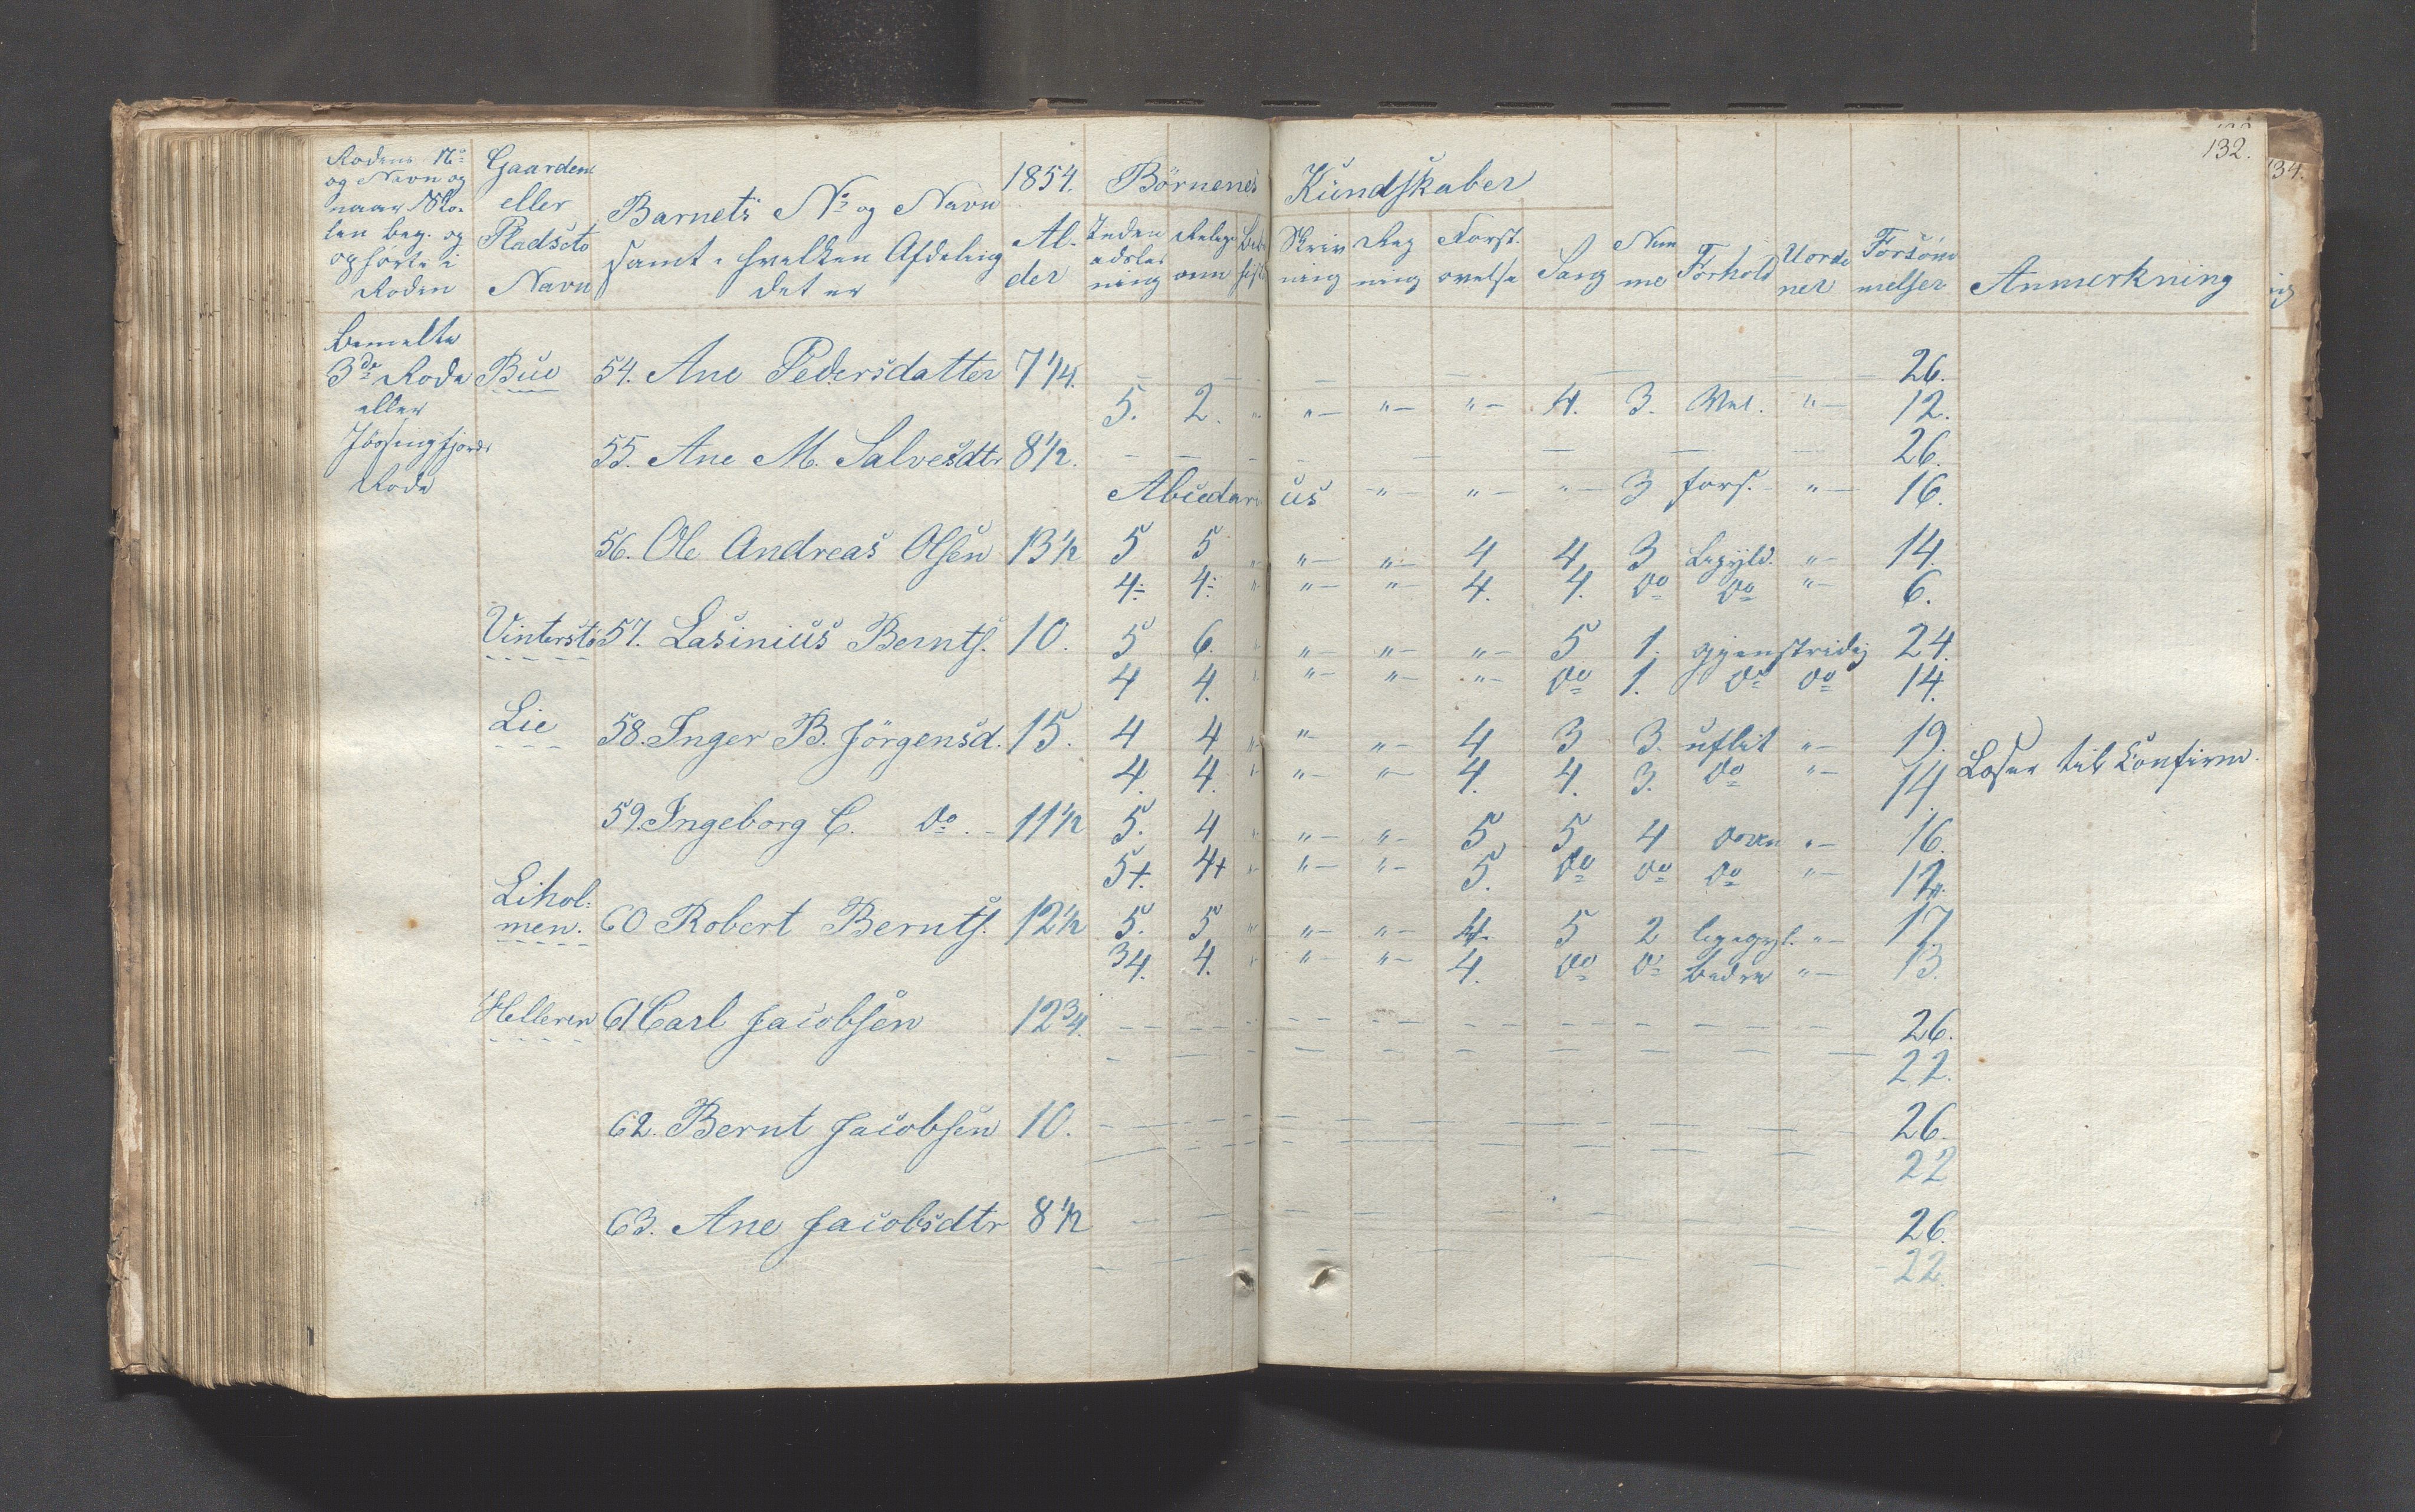 132.
134.
Rodens No og Navn og naar Skolen beg. og ophörte i Roden
Gaardens eller Pladsets Navn
Barnets No og Navn samt i hvilken Afdeling det er
1854. Alder
Börnenes Kundskaber
Religion
Skrivning
Regning
Forst. övelse
Sang
Forhold
Uordener
Forsömmelser
Anmerkning
bemelte
3de Rode Bue 54. Ane Pedersdatter 7 1/4. — — — — — — — 26.
eller 5. 2. " " — " — " — 4. 3. Vel. " — 12.
Jössingfjords 55. Ane M. Salvesdtr 8 1/2. — — — — — — — 26.
Rode Abcedarius — " — " — " — 3 fors. " — 16.
56. Ole Andreas Olsen 13 1/2 5 5 " " — " — 4 4 3 Ligegyld. " — 14.
4 4 " " — " — 4. 4. do do " — 6.
Vinterstö 57. Lasinius Bernts. 10. 5 6. " " — " — " — 5 1. gjenstridig 24.
4 4. " " — " — " — do 1. do do 14.
Lie 58. Inger B. Jörgensd. 15. 4 4 " " — " — 4 3 3. uflit " — 19.
4. 4. " " — " — 4. 4. 3. do " — 14. Læser til Confirm.
59. Ingeborg C. do. — 11 1/2 5. 4 " " — " — 5 5 4 doven " — 16.
5+. 4+ " " — " — 5. do do do " — 12.
Liholmen. 60 Robert Bernts. 12 1/2 5. 5 " " — " — 4. 5 2 ligegyl. " — 17
34. 4. " " — " — 4. do do bedre " — 13.
Helleren 61 Carl Jacobsen 12 3/4. — — — — — — — 26.
— — — — — — — 22.
62. Bernt Jacobsen 10. — — — — — — — 26.
— — — — — — — 22
63. Ane Jacobsdtr 8 1/2 — — — — — — — 26.
— — — — — — — 22